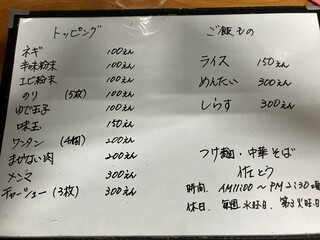 トッピング
ネギ 100えん
辛味粉末 100えん
エビ粉末 100えん
のり (5枚) 100えん
ゆで玉子 100えん
味玉 150えん
ワンタン (4個) 200えん
まぜない肉 200えん
メンマ 300えん
チャーシュー (3枚) 300えん
ご飯もの
ライス 150えん
めんたい 300えん
しらす 300えん
つけ麺・中華そば
佐とう
時間. AM11:00 〜 PM 2:30頃
休日. 毎週水曜日. 第3火曜日